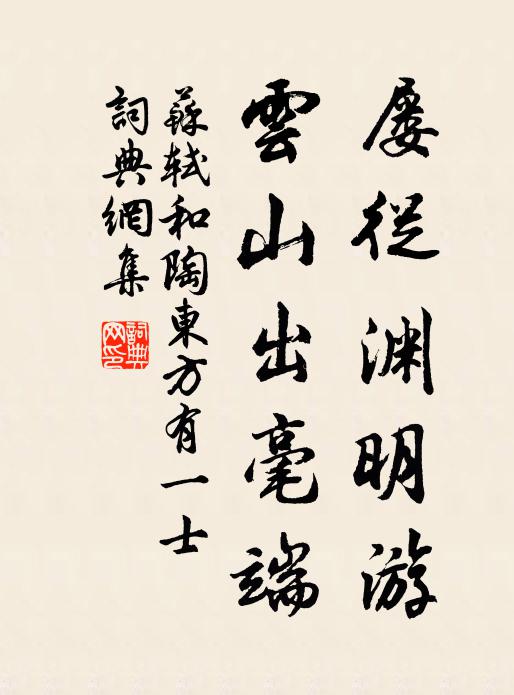 屢從淵明游
雲山出毫端
蘇軾和陶東方有一士
詞典網集
詞典
网印